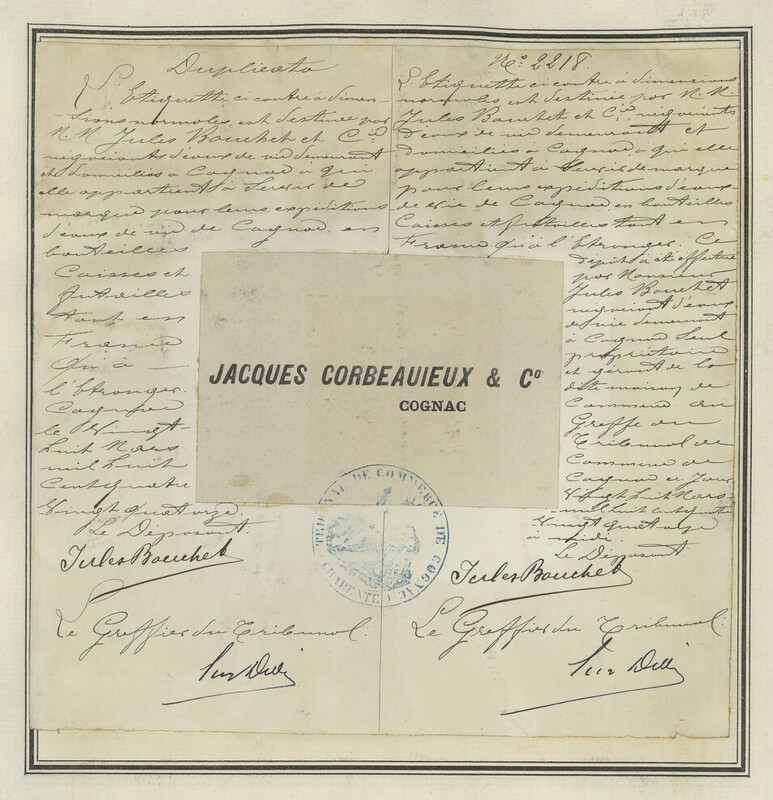 Duplicata
L'Etiquette ci contre à dimen-
sions normales, est destinée par
M.M. Jules Bouchet et Cie
négociants d'eaux de vie demeurant
et domiciliés à Cognac à qui
elle appartient à Servir de
marque pour leurs expéditions
d'eaux de vie de Cognac en
bouteilles
Caisses et
futailles
tant en
France
qu'à
l'Etranger.
Cognac
le Vingt
huit Mars
mil huit
Cent quatre
Vingt quatorze.
Le Déposant
Jules Bouchet
Le Greffier du Tribunal.
No. 2218.
L'Etiquette ci contre à dimensions
normales, est destinée par M.M.
Jules Bouchet et Cie, négociants
d'eaux de vie demeurant et
domiciliés à Cognac à qui elle
appartient à Servir de marque
pour leurs expéditions d'eaux-
de vie de Cognac en bouteilles
Caisses et futailles tant en
France qu'à l'Etranger. Ce
dépôt a été effectué
par Monsieur
Jules Bouchet
négociant d'eaux
de vie demeurant
à Cognac Seul
propriétaire
et gérant de la
dite maison de
Commerce au
Greffe du
Tribunal de
Commerce de
Cognac ce Jour
Vingt huit Mars
mil huit cent quatre
Vingt quatorze
à midi.
Le Déposant
Jules Bouchet
Le Greffier du Tribunal.
JACQUES CORBEAUIEUX & Co
COGNAC
TRIBUNAL DE COMMERCE DE COGNAC
CHARENTE